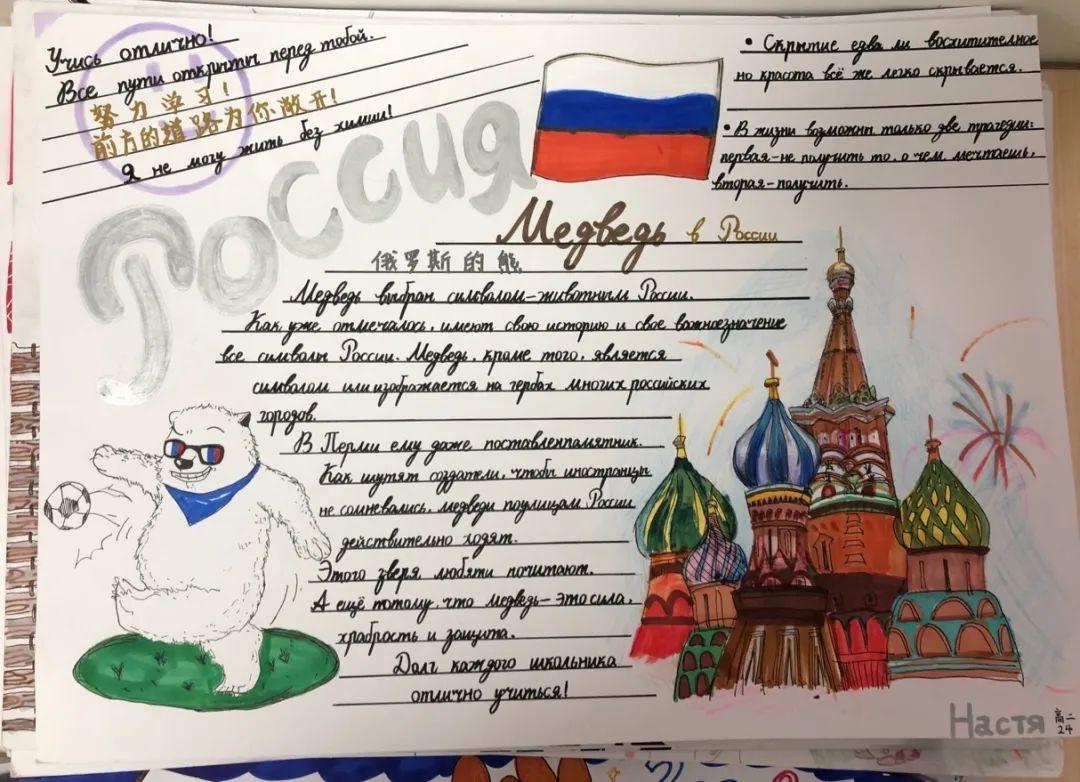 Учись отлично!
Все пути открыты перед тобой.
努力学习!
前方的道路为你敞开!
Я не могу жить без химии!
Россия
• Скрытие едва ли восхитительное
но красота всё же легко скрывается.
• В жизни возможны только две трагедии:
первая-не получить то, о чем мечтаешь,
вторая-получить.
Медведь в России
俄罗斯的熊
Медведь выбран символом-животным России.
Как уже отмечалось, имеют свою историю и свое важноезначение
все символы России. Медведь, кроме того, является
символом или изображается на гербах многих российских
городов.
В Перми ему даже поставленпамятник.
Как шутят создатели, чтобы иностранцы
не сомневались, медведи поулицам России
действительно ходят.
Этого зверя любяти почитают.
А ещё потому, что медведь-это сила,
храбрость и защита.
Долг каждого школьника
отлично учиться!
Настя
高二
24